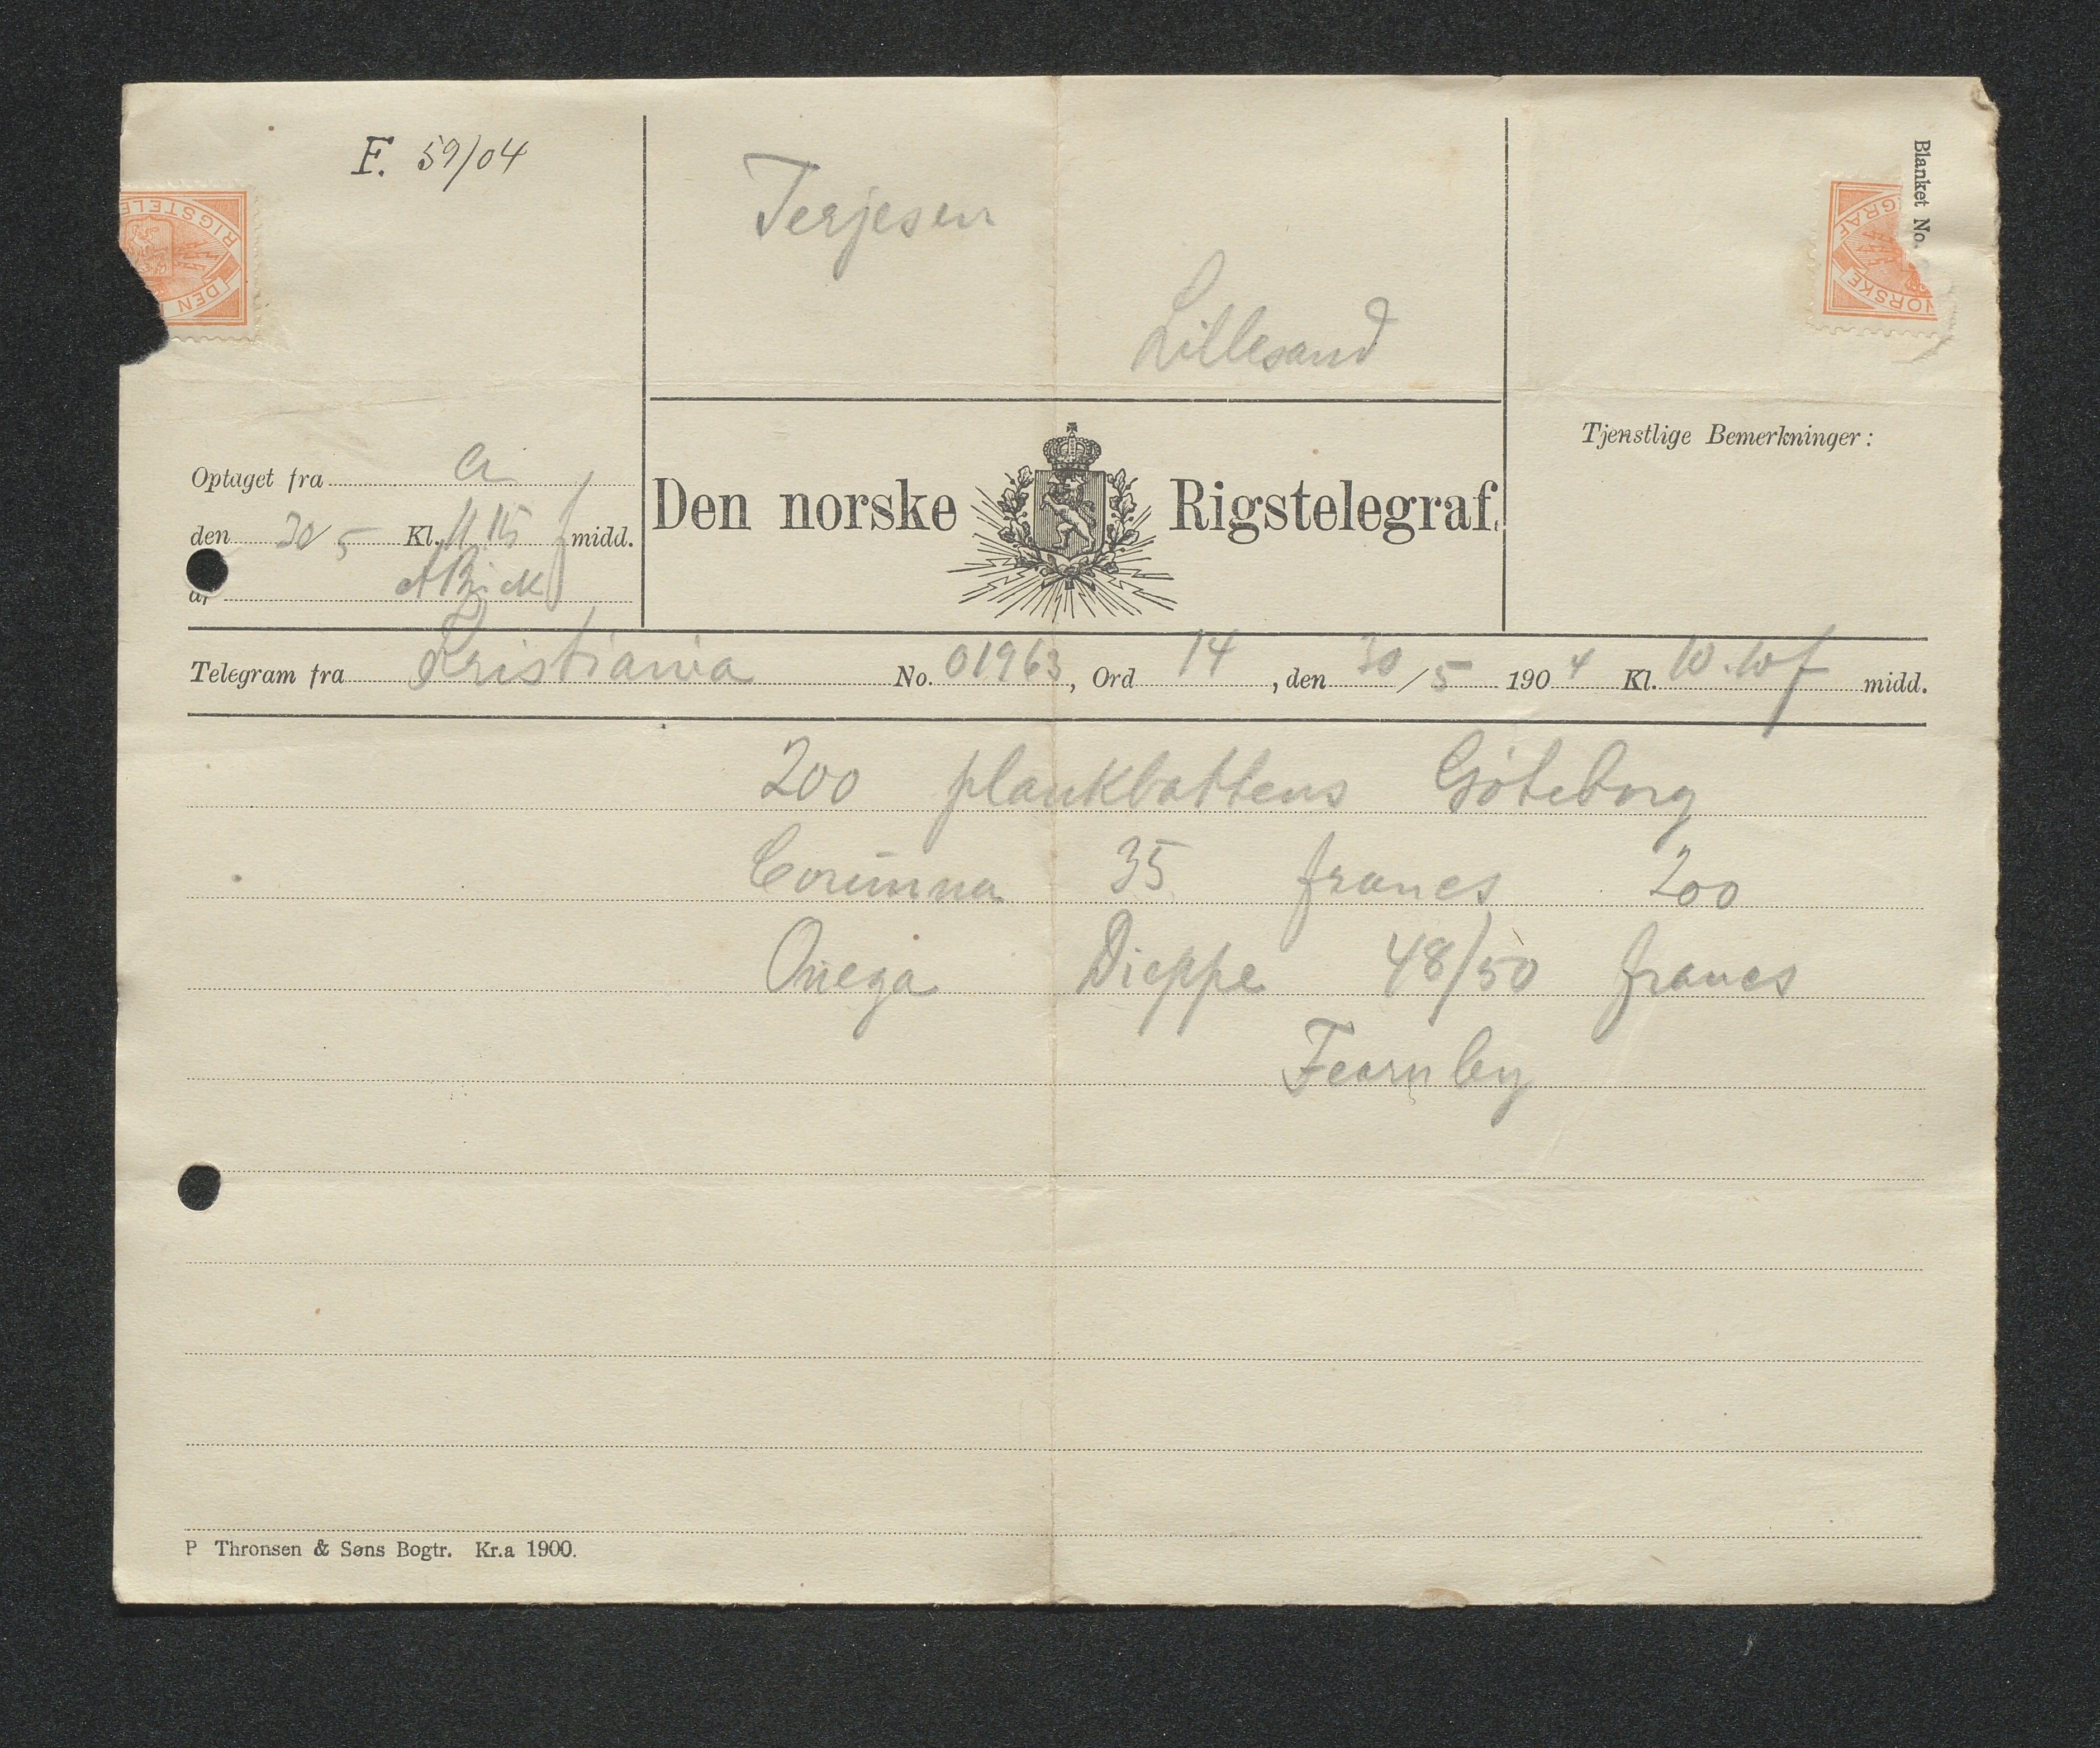 F. 59/04
Terjesen
Lillesand
Blanket No.
RIGSTELE
DEN
GRAF
NORSKE
Tjenstlige Bemerkninger:
Optaget fra a
den 30/5 Kl. 11 15 f midd.
af
Den norske Rigstelegraf.
Telegram fra Kristiania No. 01963, Ord 14, den 30/5 1904 Kl. 10.10 f midd.
200 plankbattens Göteborg
Corunna 35 francs 200
Onega Dieppe 48/50 francs
Fearnley
P Thronsen & Søns Bogtr. Kr.a 1900.